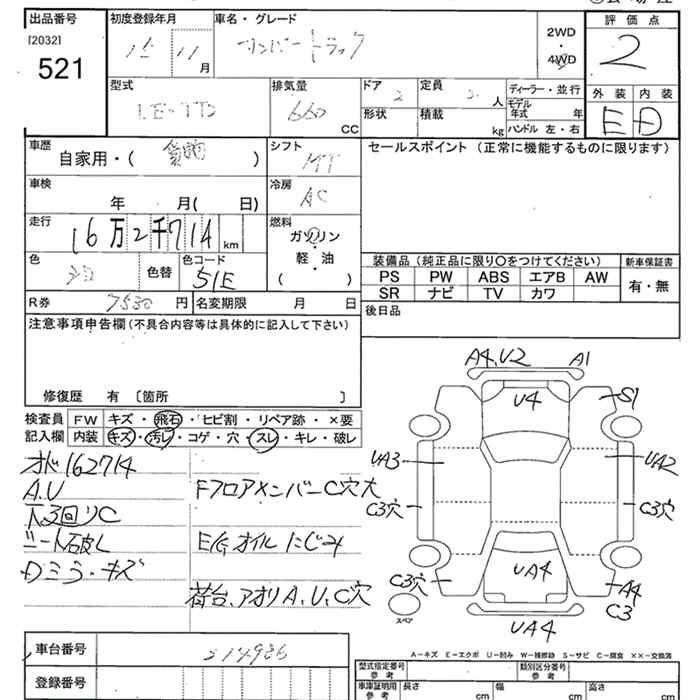 出品番号
[2032]
521
初度登録年月
15年 11月
車名・グレード
サンバートラック
2WD
・
4WD
評価点
2
外装 内装
E D
型式
LE-TT2
排気量
660 CC
ドア 2
形状
定員 2 人
積載 kg
ディーラー・並行
モデル年式 年
ハンドル 左・右
車歴
自家用・(貨物)
シフト
MT
セールスポイント(正常に機能するものに限ります)
車検
年 月( 日)
冷房
AC
走行
16万2千714 km
燃料
ガソリン
・
軽・油
( )
色
シロ
色替
色コード
51E
装備品(純正品に限り○をつけてください)
PS PW ABS エアB AW
SR ナビ TV カワ
新車保証書
有・無
R券 7530 円
名変期限 月 日
後日品
注意事項申告欄(不具合内容等は具体的に記入して下さい)
修復歴 有 〔箇所 〕
検査員記入欄
FW キズ・飛石・ヒビ割・リペア跡・×要
内装 キズ・汚レ・コゲ・穴・スレ・キレ・破レ
オド162714
A.U
下廻りC
シート破レ
Dミラ・キズ
FフロアメンバーC穴大
E/G オイルにじみ
荷台、アオリA、U、C穴
A4.U2
A1
U4
S1
UA3
UA2
C3穴
C3穴
C3穴
UA4
A4
C3
スペア
UA4
A-キズ E-エクボ U-凹み W-補修跡 S-サビ C-腐食 ××-交換済
車台番号
214986
登録番号
型式指定番号
参考
類別区分番号
参考
車庫証明用
参考
長さ cm
幅 cm
高さ cm